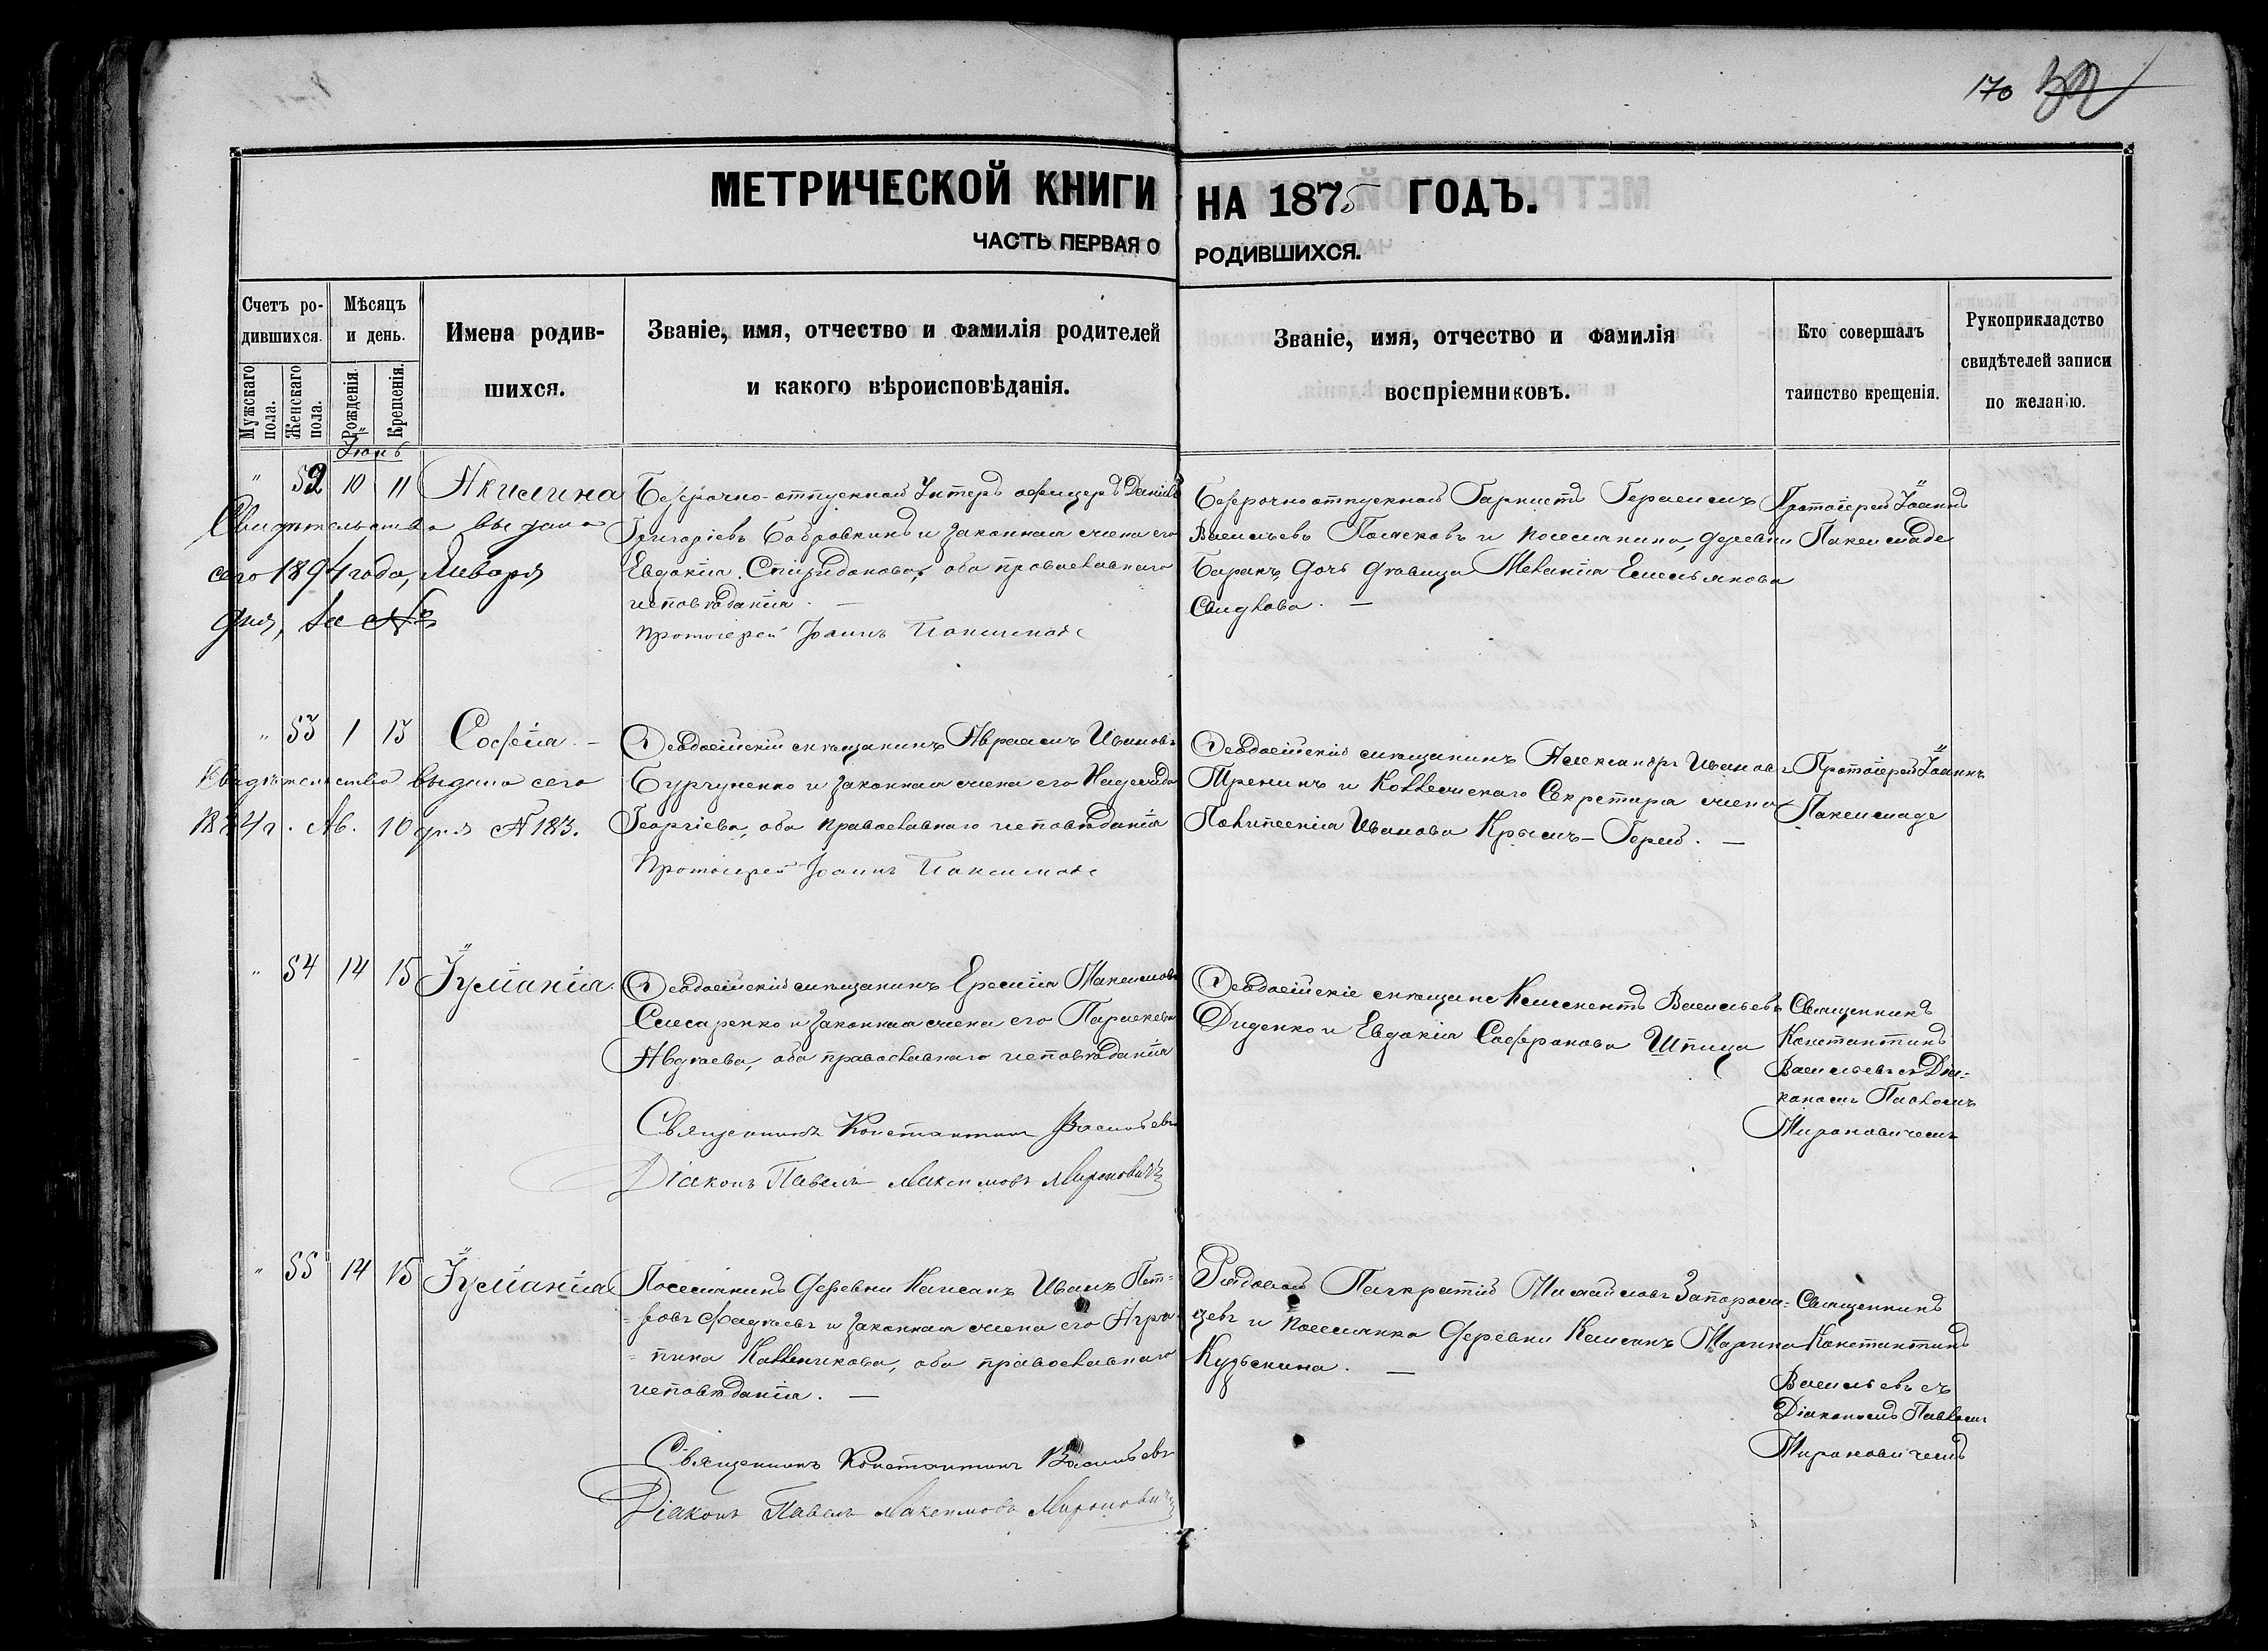 170 32
МЕТРИЧЕСКОЙ КНИГИ НА 1875 ГОДЪ.
ЧАСТЬ ПЕРВАЯ О РОДИВШИХСЯ.
Счетъ ро-
дившихся.
Мужскаго
пола.
Женскаго
пола.
Мѣсяцъ
и день.
Рожденія.
Крещенія.
Имена родив-
шихся.
Званіе, имя, отчество и фамилія родителей
и какого вѣроисповѣданія.
Званіе, имя, отчество и фамилія
воспріемниковъ.
Кто совершалъ
таинство крещенія.
Рукоприкладство
свидѣтелей записи
по желанію.
Іюнь
" 52 10 11 Акилина
Свидѣтельство выдано
сего 1894 года, Января
дня, за №
Безсрочно-отпускной Унтеръ офицеръ Даніилъ
Григоріевъ Бобровкинъ и законная жена его
Евдокія Спиридонова, оба православнаго
исповѣданія. —
Протоіерей Іоаннъ Паксимаде
Безсрочноотпускной Горнистъ Герасимъ
Васильевъ Поляковъ и поселянина, деревни
Баракъ, дочь дѣвица Меланія Емельянова
. —
Протоіерей Іоаннъ
Паксимаде
" 53 1 15 Софія. —
Свидѣтельство выдано сего
1884 г. Ав. 10 дня № 183.
Ѳеодосійскій мѣщанинъ Авраамъ Ивановъ
Бургуненко и законная жена его Надежда
Георгіева, оба православнаго исповѣданія
Протоіерей Іоаннъ Паксимаде
Ѳеодосійскій мѣщанинъ Александръ Ивановъ
Тренинъ и Коллежскаго Секретаря жена
Поликсенія Иванова Крымъ-Герей. —
Протоіерей Іоаннъ
Паксимаде
" 54 14 15 Іуліанія.
Ѳеодосійскій мѣщанинъ Еремія Максимовъ
Слесаренко и законная жена его Параскева
Авдѣева, оба православнаго исповѣданія
Священникъ Константинъ Васильевъ
Діаконъ Павелъ Максимовъ Мироновичъ
Ѳеодосійскіе мѣщане Климентъ Васильевъ
Диденко и Евдокія Софронова Шпица
Священникъ
Константинъ
Васильевъ съ Діа-
кономъ Павломъ
Мироновичемъ
" 55 14 15 Іуліанія
Поселянинъ деревни Насыпъ Иванъ Пет-
ровъ Фадѣевъ и законная жена его Агри-
пина Колленикова, оба православнаго
исповѣданія. —
Священникъ Константинъ Васильевъ
Діаконъ Павелъ Максимовъ Мироновичъ
Рядовой Панкратій Михайловъ Запорож-
цевъ и поселянка деревни Насыпъ Марина
Кузьмина. —
Священникъ
Константинъ
Васильевъ съ
Діакономъ Павломъ
Мироновичемъ